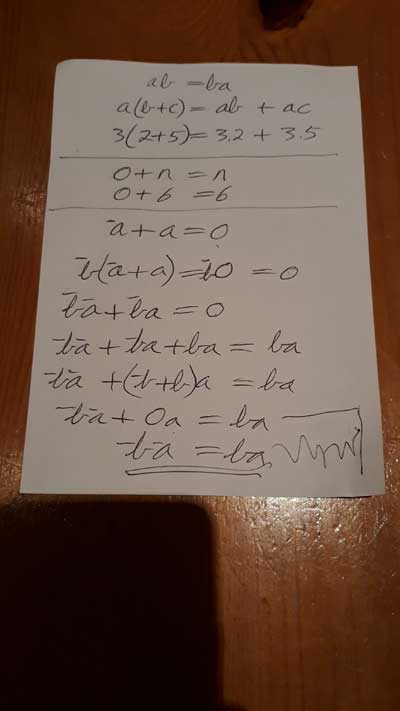 ab = ba
a(b+c) = ab + ac
3(2+5) = 3.2 + 3.5
0+n = n
0+6 = 6
-a+a=0
-b(-a+a)=-b0 = 0
-b-a+-ba = 0
-b-a+-ba+ba = ba
-b-a +(-b+b)a = ba
-b-a+0a = ba
-b-a = ba